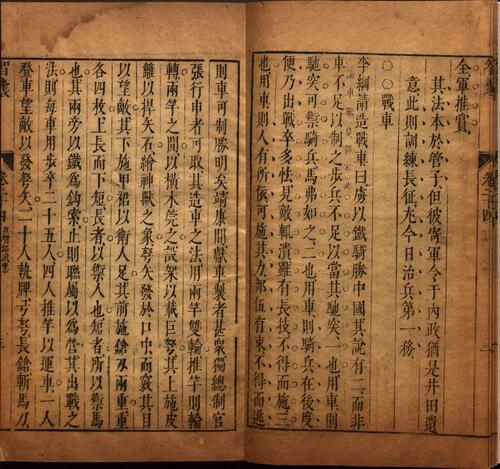 全軍推賞
其法本於管子但彼寄軍令于內政猶是井田遺
意此則訓練長征尤今日治兵第一務
○○戰車
李綱請造戰車曰虜以鐵騎勝中國其說有二而非
車不足以制之步兵不足以當其馳突一也用車則
馳突可禦騎兵馬弗如之二也用車則騎兵在後度
便乃出戰卒多怯見敵輒潰雖有長技不得而施三
也用車則人有所依可施其力部伍有束不得而逃
則車可制勝明矣靖康間獻車製者甚衆獨總制官
張行中者可取其造車之法用兩竿雙輪推竿則輪
轉兩竿之間以橫木筦之設架以載巨弩其上施皮
籬以捍矢石繪神獸之象弩矢發於口中而竅其目
以望敵其下施甲裙以衛人足其前施鎗刃兩重重
各四枚上長而下短長者以禦人也短者所以禦馬
也其兩旁以鐵爲鉤索止則聯屬以爲營其出戰之
法則每車用步卒二十五人四人推竿以運車一人
登車望敵以發弩矢二十人執牌弓弩長鎗斬馬刀
智囊 卷二十四